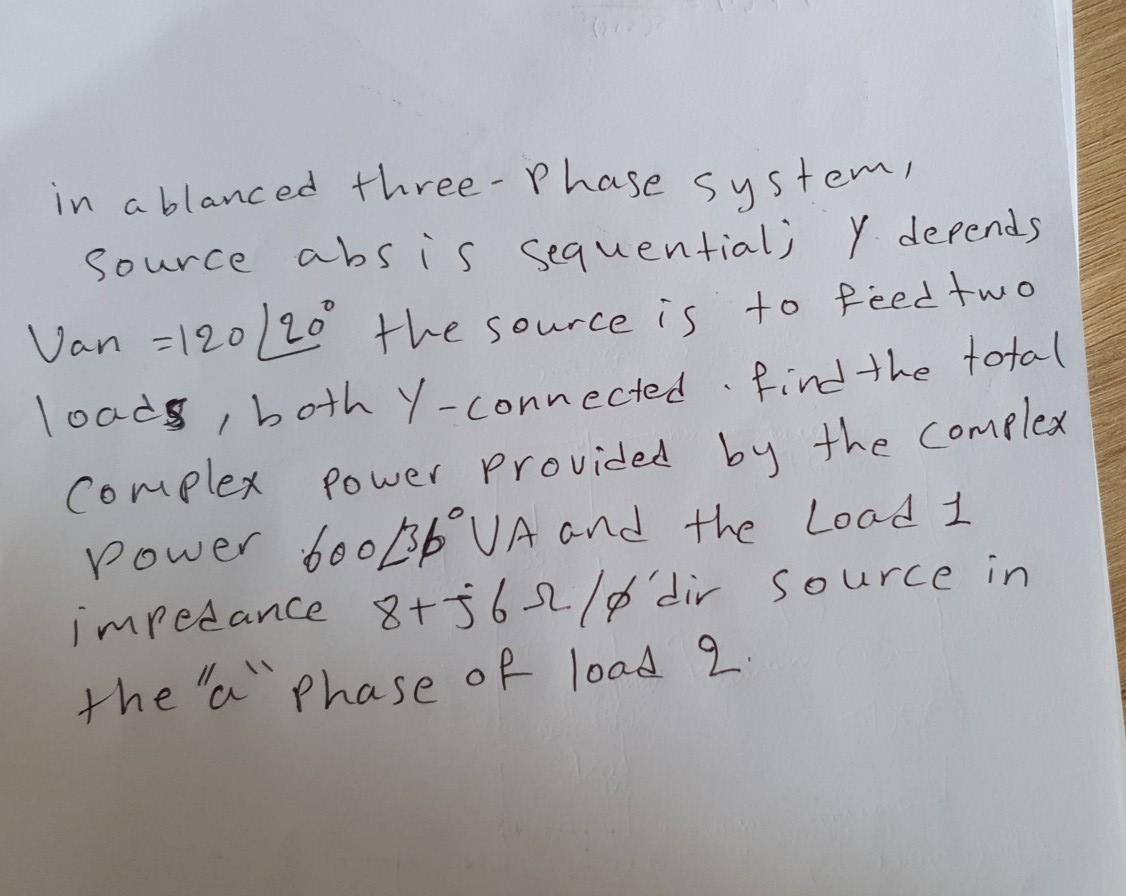 in a blanced three-Phase system,
source abs is sequential; Y depends
Van =120∠20° the source is to feed two
loads, both Y-connected. find the total
Complex power provided by the complex
power 600∠36° VA and the Load 1
impedance 8+j6Ω/ϕ'dir source in
the "a" phase of load 2.